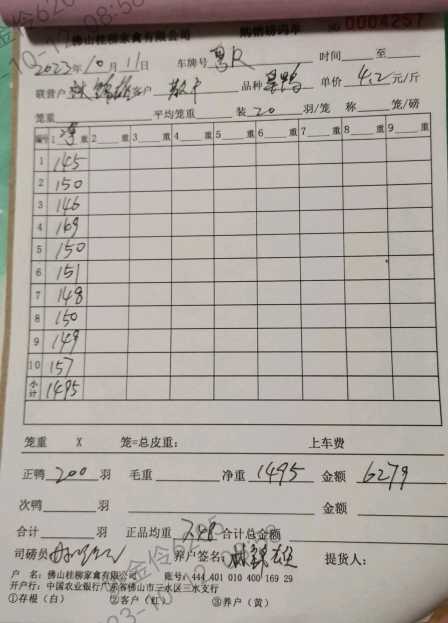 佛山桂柳家禽有限公司 № 0004257
2023年10月11日 车牌号 粤R 时间 至
联营户 客户 散户 品种 单价 4.2 元/斤
笼重 平均笼重 装 20 羽/笼 称 笼/磅
编号 1 净 重 2 重 3 重 4 重 5 重 6 重 7 重 8 重 9 重
1 145
2 150
3 146
4 169
5 150
6 151
7 148
8 150
9 149
10 157
小计 1495
笼重 X 笼=总皮重: 上车费
正鸭 200 羽 毛重 净重 1495 金额 6279
次鸭 羽 金额
合计 羽 正品均重 7.48 合计总金额
司磅员 养户签名: 提货人:
户 名: 佛山桂柳家禽有限公司 账号: 444 401 010 400 169 29
开户行: 中国农业银行广东省佛山市三水区三水支行
①存根(白) ②客户(红) ③养户(黄)